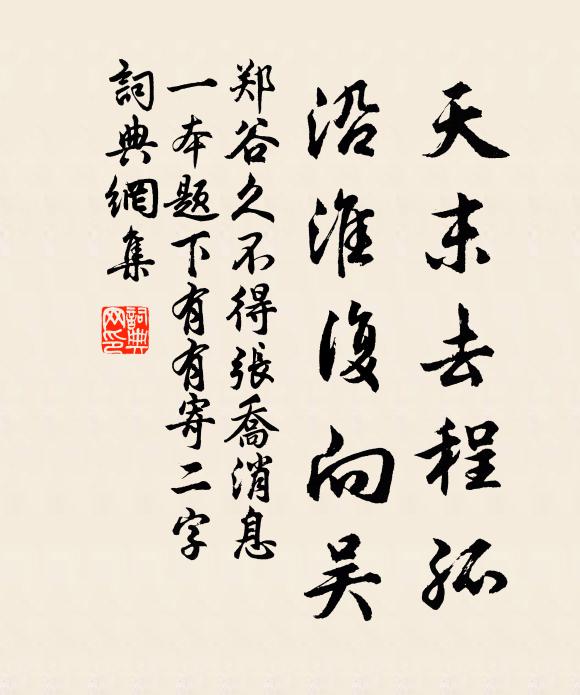 天末去程孤
沿淮復向吴
郑谷久不得張喬消息
一本题下有有寄二字
詞典網集
詞典
网印